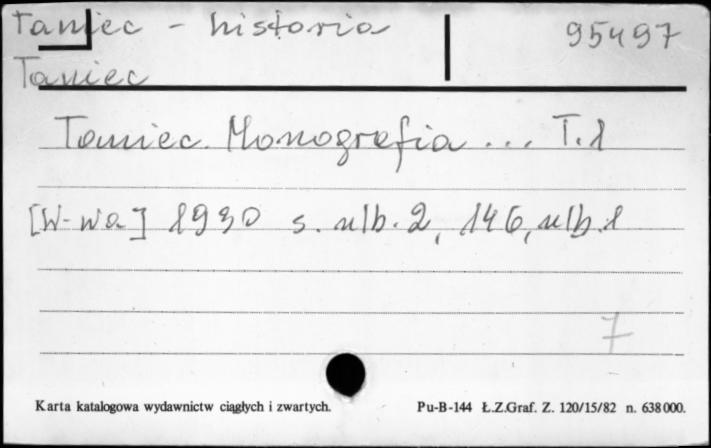 Taniec - historia 95497
Taniec
Taniec. Monografia ... T.1
[W-wa] 1930 s. nlb. 2, 146, nlb. 1
7
Karta katalogowa wydawnictw ciągłych i zwartych. Pu-B-144 Ł.Z.Graf. Z. 120/15/82 n. 638000.